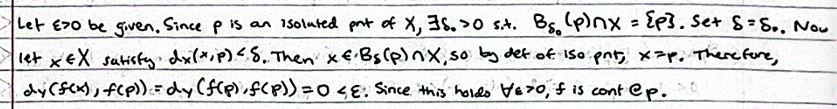 Let ε>0 be given. Since p is an isolated pnt of X, ∃δ₀>0 s.t. B_δ₀(p)∩X = {p}. Set δ=δ₀. Now
let x∈X satisfy dx(x,p)<δ. Then x∈B_δ(p)∩X, so by def of iso pnt, x=p. Therefore,
dy(f(x), f(p)) = dy(f(p), f(p)) = 0 < ε. Since this holds ∀ε>0, f is cont @ p.